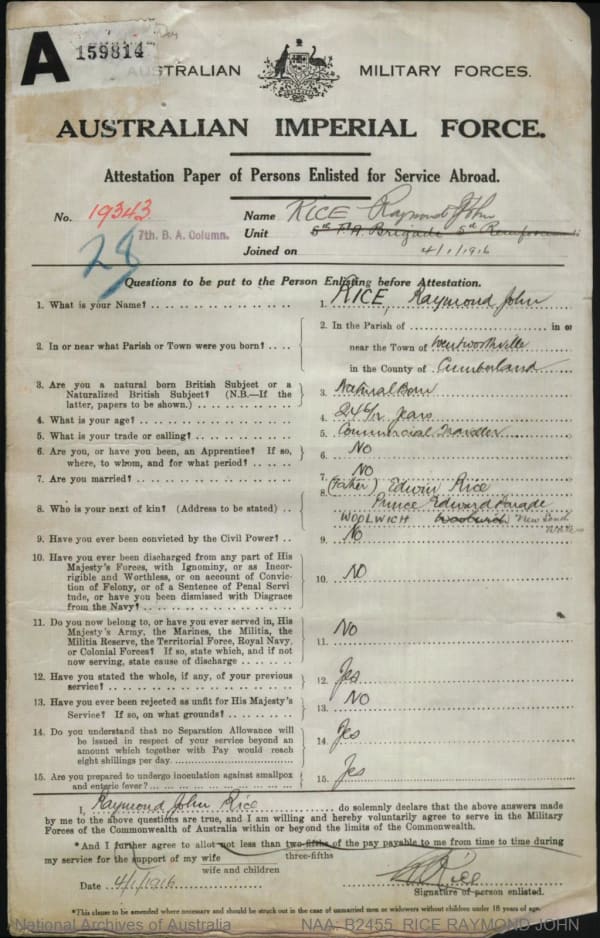 A
159814
AUSTRALIAN MILITARY FORCES.
AUSTRALIAN IMPERIAL FORCE.
Attestation Paper of Persons Enlisted for Service Abroad.
No. 19343 Name RICE Raymond John
28 7th. B. A. Column. Unit 5th F.A. Brigade 5th
Joined on 4/1/1916
Questions to be put to the Person Enlisting before Attestation.
1. What is your Name? 1. RICE, Raymond John
2. In or near what Parish or Town were you born? 2. In the Parish of in or
near the Town of Wentworthville
in the County of Cumberland
3. Are you a natural born British Subject or a
Naturalized British Subject? (N.B.—If the
latter, papers to be shown.) 3. Natural Born
4. What is your age? 4. Years
5. What is your trade or calling? 5. Commercial Traveller
6. Are you, or have you been, an Apprentice? If so,
where, to whom, and for what period? 6. No
7. Are you married? 7. No
8. Who is your next of kin? (Address to be stated) 8. (Father) Edwin Rice
Prince Edward Parade
WOOLWICH Woolwich
9. Have you ever been convicted by the Civil Power? 9. No
10. Have you ever been discharged from any part of His
Majesty's Forces, with Ignominy, or as Incor-
rigible and Worthless, or on account of Convic-
tion of Felony, or of a Sentence of Penal Servi-
tude, or have you been dismissed with Disgrace
from the Navy? 10. No
11. Do you now belong to, or have you ever served in, His
Majesty's Army, the Marines, the Militia, the
Militia Reserve, the Territorial Force, Royal Navy,
or Colonial Forces? If so, state which, and if not
now serving, state cause of discharge 11. No
12. Have you stated the whole, if any, of your previous
service? 12. Yes
13. Have you ever been rejected as unfit for His Majesty's
Service? If so, on what grounds? 13. No
14. Do you understand that no Separation Allowance will
be issued in respect of your service beyond an
amount which together with Pay would reach
eight shillings per day. 14. Yes
15. Are you prepared to undergo inoculation against smallpox
and enteric fever? 15. Yes
I, Raymond John Rice do solemnly declare that the above answers made
by me to the above questions are true, and I am willing and hereby voluntarily agree to serve in the Military
Forces of the Commonwealth of Australia within or beyond the limits of the Commonwealth.
*And I further agree to allot not less than two-fifths of the pay payable to me from time to time during
three-fifths
my service for the support of my wife
wife and children
Date 4/1/1916 Rice
Signature of person enlisted.
*This clause to be amended where necessary and should be struck out in the case of unmarried men or widowers without children under 18 years of age.
National Archives of Australia NAA: B2455, RICE RAYMOND JOHN